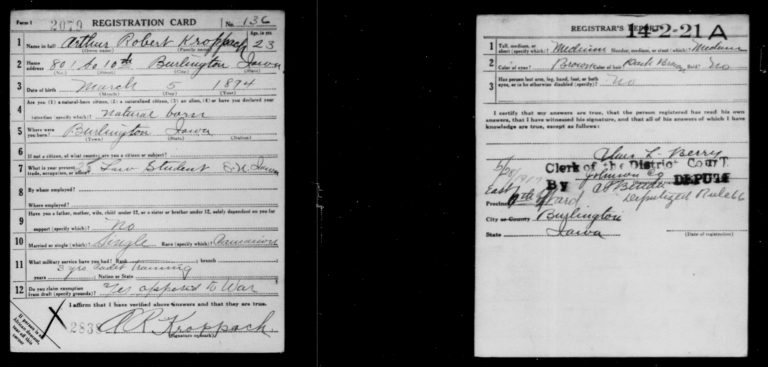 Form 1 2079 REGISTRATION CARD No. 136
1 Name in full Arthur Robert Kroppach Age, in yrs. 23
(Given name) (Family name)
2 Home address 801 So 10th Burlington Iowa
(No.) (Street) (City) (State)
3 Date of birth March 5 1894
(Month) (Day) (Year)
4 Are you (1) a natural-born citizen, (2) a naturalized citizen, (3) an alien, (4) or have you declared your
intention (specify which)? natural born
5 Where were you born? Burlington Iowa
(Town) (State) (Nation)
6 If not a citizen, of what country are you a citizen or subject?
7 What is your present trade, occupation, or office? Law Student Iowa
8 By whom employed?
Where employed?
9 Have you a father, mother, wife, child under 12, or a sister or brother under 12, solely dependent on you for
support (specify which)? No
10 Married or single (which)? Single Race (specify which)?
11 What military service have you had? Rank ; branch
years 3 yrs Cadet Training ; Nation or State
12 Do you claim exemption from draft (specify grounds)? Yes opposed to War
I affirm that I have verified above answers and that they are true.
283 A R Kroppach
(Signature or mark)
If person is of African descent, tear off this corner
REGISTRAR'S REPORT 14-2-21 A
1 Tall, medium, or short (specify which)? Medium Slender, medium, or stout (which)? Medium
2 Color of eyes? Brown Color of hair? Dark Brown Bald? No
3 Has person lost arm, leg, hand, foot, or both
eyes, or is he otherwise disabled (specify)? No
I certify that my answers are true, that the person registered has read his own
answers, that I have witnessed his signature, and that all of his answers of which I have
knowledge are true, except as follows:
L. Berry
Clerk of the District Court
Johnson Co
By DEPUTY
Precinct Ward Deputized Rule 66
City or County Burlington
State Iowa (Date of registration)